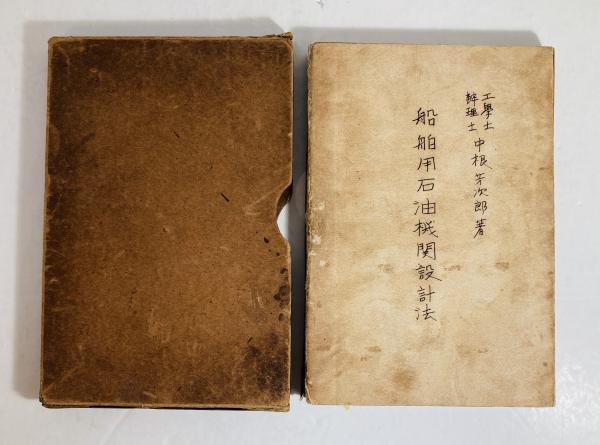 工學士
辨理士
中根㐧次郎著
船舶用石油機関設計法